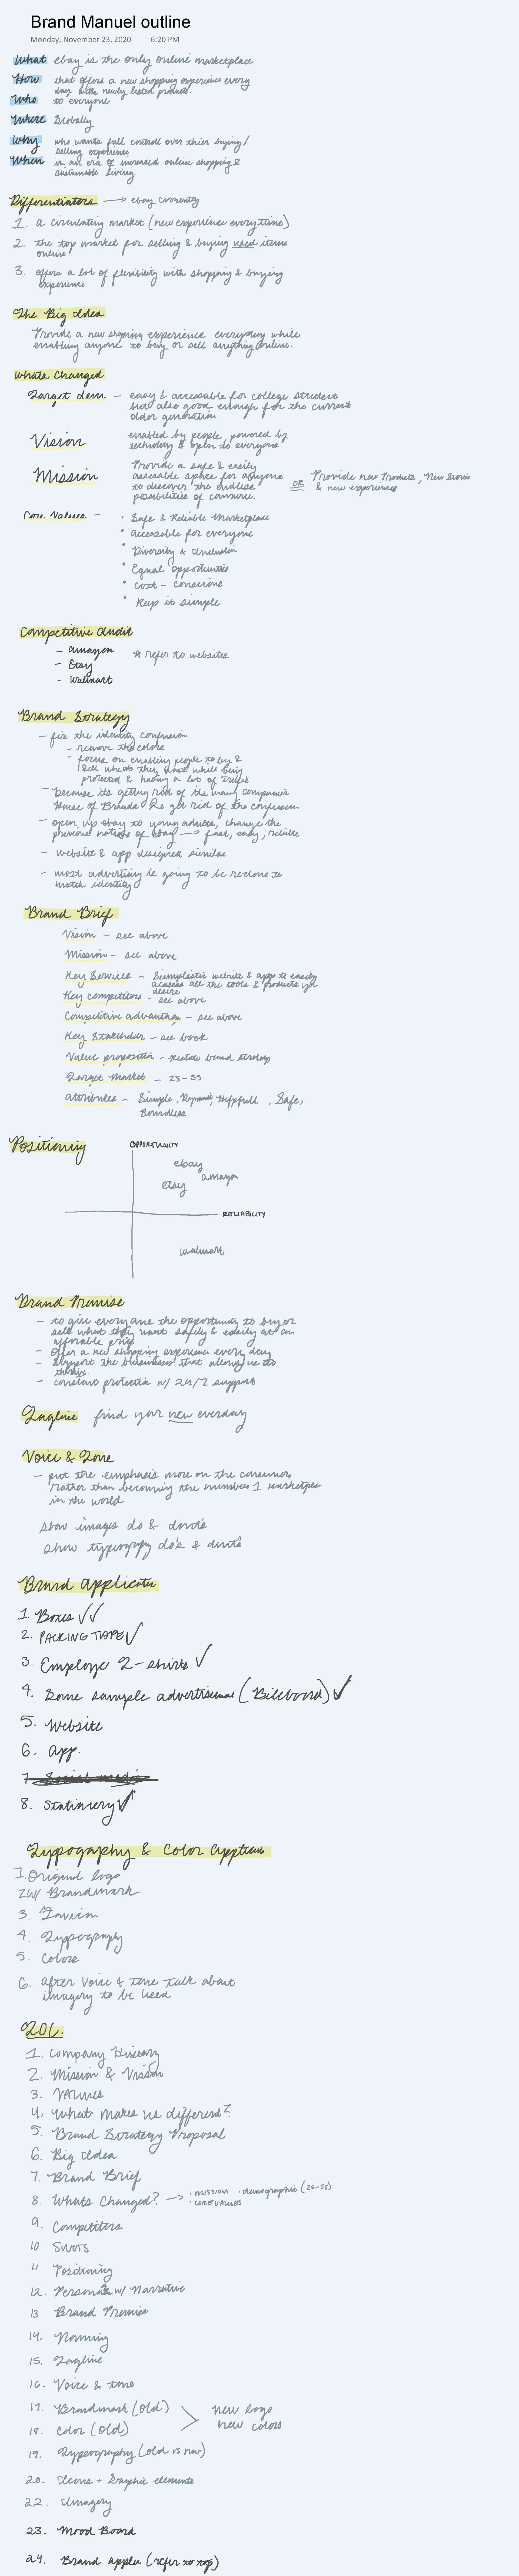 Brand Manuel outline
Monday, November 23, 2020 6:20 PM
What ebay is the only online marketplace
How that offers a new shopping experience every
day with newly listed products.
Who to everyone
Where Globally
Why who wants full control over thier buying/
selling experience
When in an era of increased online shopping &
sustainable living.
Differentiators → ebay currently
1. a circulating market (new experience every time)
2. the top market for selling & buying used items
online
3. offers a lot of flexibility with shopping & buying
experience
The Big Idea
Provide a new shopping experience everyday while
enabling anyone to buy or sell anything online.
Whats Changed
Target dem - easy & accessable for college students
but also good enough for the current
older generation
Vision enabled by people, powered by
technology & open to everyone
Mission Provide a safe & easily
assesable space for anyone
to discover the endless
possibilities of commerce.
OR Provide new Products, New Stories
& new experiences
Core Values -
• Safe & Reliable Marketplace
• accessable for everyone
• Diversity & Inclusion
• Equal opportunities
• Cost - Conscious
• Keep it simple
Competitive audit
- amazon
* refer to websites
- Etsy
- Walmart
Brand Strategy
- fix the identity confusion
- remove the colors
- focus on enabling people to buy &
sell what they want while being
protected & having a lot of trust
- because its getting rid of its many companies
House of Brands to get rid of the confusion
- open up ebay to young adults, change the
previous notions of ebay → fast, easy, reliable
- Website & app designed similar
- most advertising is going to be re-done to
match identity
Brand Brief
Vision - see above
Mission - see above
Key Services - Simplistic website & app to easily
access all the tools & products you
desire
Key competitors - see above
Competitive advantage - see above
Key Stakeholder - see book
Value proposition - restate brand strategy
Target Market - 25-55
Attributes - Simple, Dynamic, Helpfull, Safe,
Boundless
Positioning
OPPORTUNITY
ebay
amazon
etsy
RELIABILITY
walmart
Brand Promise
- to give everyone the opportunity to buy or
sell what they want safely & easily at an
afforable price
- offer a new shopping experience every day
- support the businesses that allows us to
thrive
- constant protection w/ 24/7 support
Tagline find your new everyday
Voice & Tone
- put the emphasis more on the consumer,
rather than becoming the number 1 marketplace
in the world
show images do & dont's
show typography do's & dont's
Brand Application
1. Boxes ✓✓
2. PACKING TAPE ✓
3. Employe T-shirts ✓
4. Some sample advertisement (Billboard) ✓
5. Website
6. App.
8. Stationery ✓
Typography & Color
1. Original logo
Brandmark
3. Favicon
4. Typography
5. Colors
6. After Voice & tone talk about
imagery to be used
TOC.
1. Company History
2. Mission & Vision
3. Values
4. What makes us different?
5. Brand Strategy Proposal
6. Big Idea
7. Brand Brief
8. Whats Changed? → • mission • demographic (25-55)
• core values
9 Competitors
10 Swots
11 Positioning
12. Personas w/ Narrative
13 Brand Promise
14. Naming
15. Tagline
16. Voice & tone
17. Brandmark (old)
new logo
18. Color (old)
new colors
19. Typeography (old vs new)
20. Icons + Graphic elements
22. Imagery
23. Mood Board
24. Brand applic (refer to top)